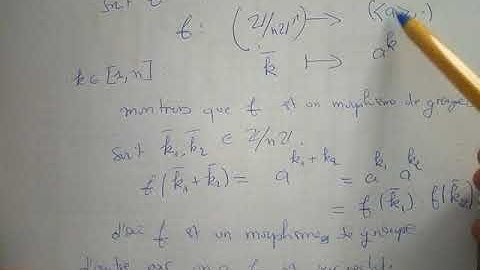 f : (ℤ/nℤ, +) ⟼ (<a>, .)
k̄ ⟼ a^k
k ∈ [1, n]
montrons que f est un morphisme de groupe
Soit k̄₁, k̄₂ ∈ ℤ/nℤ.
f(k̄₁ + k̄₂) = a^{k₁ + k₂} = a^{k₁} a^{k₂}
= f(k̄₁) . f(k̄₂)
d'où f est un morphisme de groupe
d'autre par